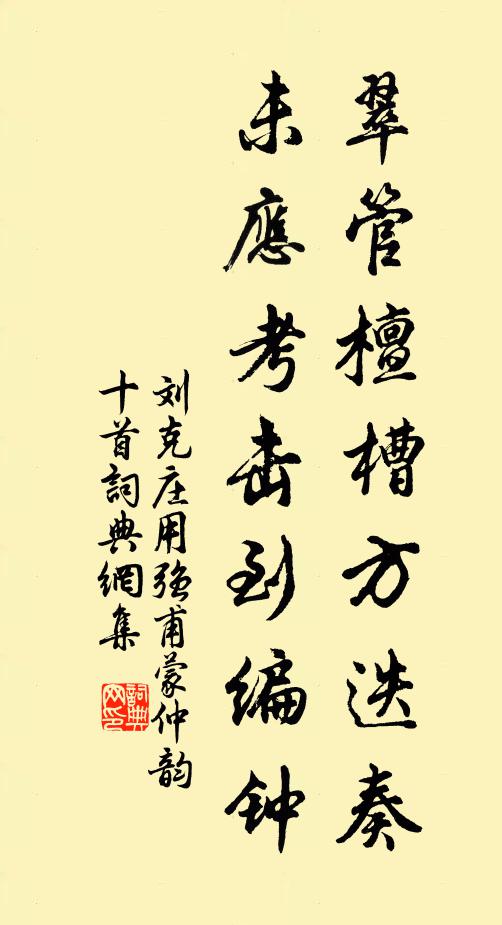 翠管檀槽方迭奏
未應考击到编钟
刘克庄用强甫蒙仲韵
十首詞典網集
詞典网印